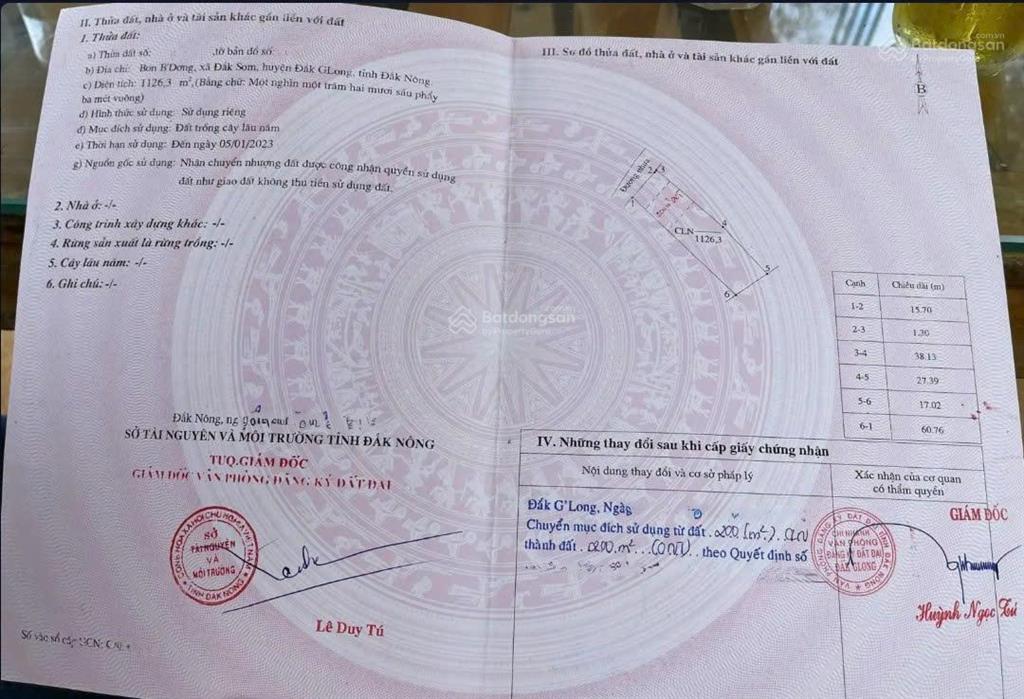 II. Thửa đất, nhà ở và tài sản khác gắn liền với đất
1. Thửa đất:
a) Thửa đất số: , tờ bản đồ số:
b) Địa chỉ: Bon B'Dơng, xã Đắk Som, huyện Đắk GLong, tỉnh Đắk Nông
c) Diện tích: 1126,3 m², (Bằng chữ: Một nghìn một trăm hai mươi sáu phẩy
ba mét vuông)
d) Hình thức sử dụng: Sử dụng riêng
đ) Mục đích sử dụng: Đất trồng cây lâu năm
e) Thời hạn sử dụng: Đến ngày 05/01/2023
g) Nguồn gốc sử dụng: Nhận chuyển nhượng đất được công nhận quyền sử dụng
đất như giao đất không thu tiền sử dụng đất.
2. Nhà ở: -/-
3. Công trình xây dựng khác: -/-
4. Rừng sản xuất là rừng trồng: -/-
5. Cây lâu năm: -/-
6. Ghi chú: -/-
Đắk Nông,
SỞ TÀI NGUYÊN VÀ MÔI TRƯỜNG TỈNH ĐẮK NÔNG
TUQ.GIÁM ĐỐC
GIÁM ĐỐC VĂN PHÒNG ĐĂNG KÝ ĐẤT ĐAI
SỞ
TÀI NGUYÊN
VÀ
MÔI TRƯỜNG
TỈNH ĐẮK NÔNG
Lê Duy Tú
Số vào sổ cấp GCN:
III. Sơ đồ thửa đất, nhà ở và tài sản khác gắn liền với đất
B
Đường nhựa
1
2
3
4
5
6
CLN
1126,3
Cạnh Chiều dài (m)
1-2 15.70
2-3 1.30
3-4 38.13
4-5 27.39
5-6 17.02
6-1 60.76
IV. Những thay đổi sau khi cấp giấy chứng nhận
Nội dung thay đổi và cơ sở pháp lý
Xác nhận của cơ quan
có thẩm quyền
Đắk G'Long, Ngày
Chuyển mục đích sử dụng từ đất 200 (m²) CLN
thành đất 200 m² (ONT) theo Quyết định số
GIÁM ĐỐC
CHI NHÁNH
VĂN PHÒNG
ĐĂNG KÝ ĐẤT ĐAI
ĐẮK GLONG
Huỳnh Ngọc Tú
Batdongsan
by PropertyGuru
Batdongsan
.com.vn